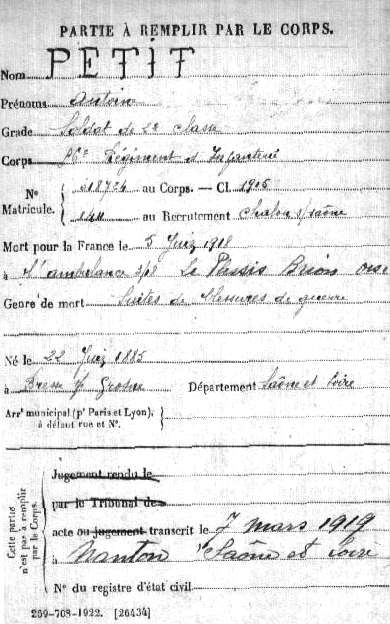 PARTIE À REMPLIR PAR LE CORPS.
Nom PETIT
Prénoms Antoine
Grade Soldat de 2e classe
Corps Régiment d'Infanterie
No Matricule. { 18724 au Corps. — Cl. 1905
au Recrutement Chalon s/Saône
Mort pour la France le 5 Juin 1918
à l'ambulance Le Plessis Brion Oise
Genre de mort Suites de Blessures de guerre
Né le 22 Juin 1885
à Bresse s/ Grosne Département Saône et Loire
Arrt municipal (pr Paris et Lyon), à défaut rue et No.
Cette partie n'est pas à remplir par le Corps.
Jugement rendu le
par le Tribunal de
acte ou jugement transcrit le 7 mars 1919
à Nanton Saône et Loire
No du registre d'état civil
269-708-1922. [26434]